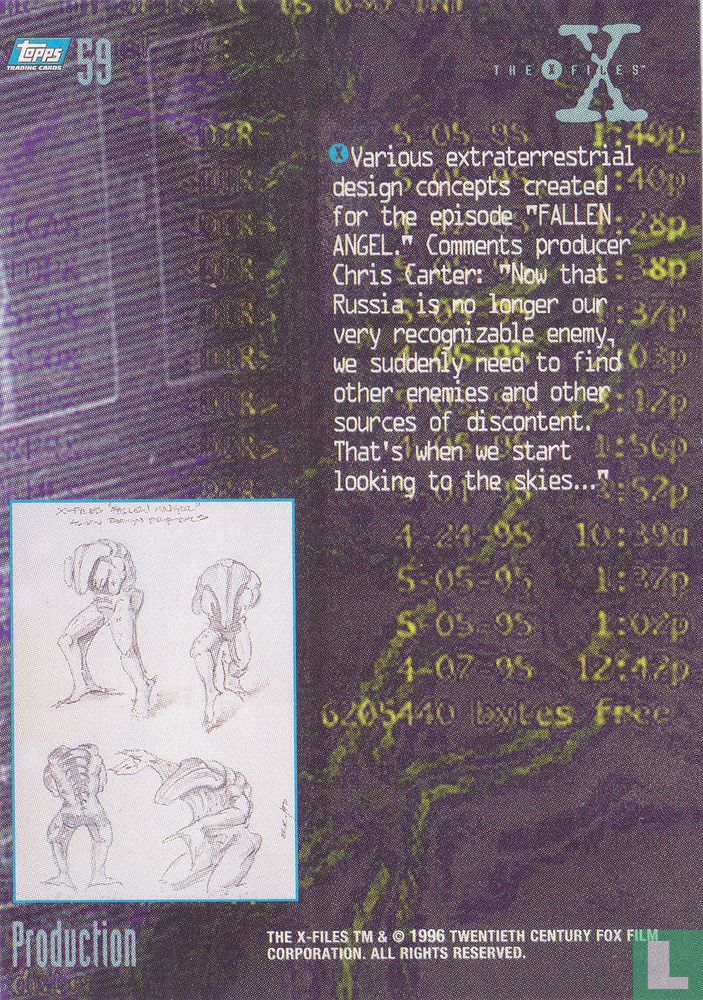 Topps
TRADING CARDS
59
THE X FILES™
X
Various extraterrestrial
design concepts created
for the episode "FALLEN
ANGEL." Comments producer
Chris Carter: "Now that
Russia is no longer our
very recognizable enemy,
we suddenly need to find
other enemies and other
sources of discontent.
That's when we start
looking to the skies..."
5-05-95 1:40p
1:40p
1:28p
1:37p
1:56p
4-24-95 10:39a
5-05-95 1:37p
5-05-95 1:02p
4-07-95 12:42p
6205440 bytes free
X-FILES "FALLEN ANGEL"
Production
THE X-FILES TM & © 1996 TWENTIETH CENTURY FOX FILM
CORPORATION. ALL RIGHTS RESERVED.
L